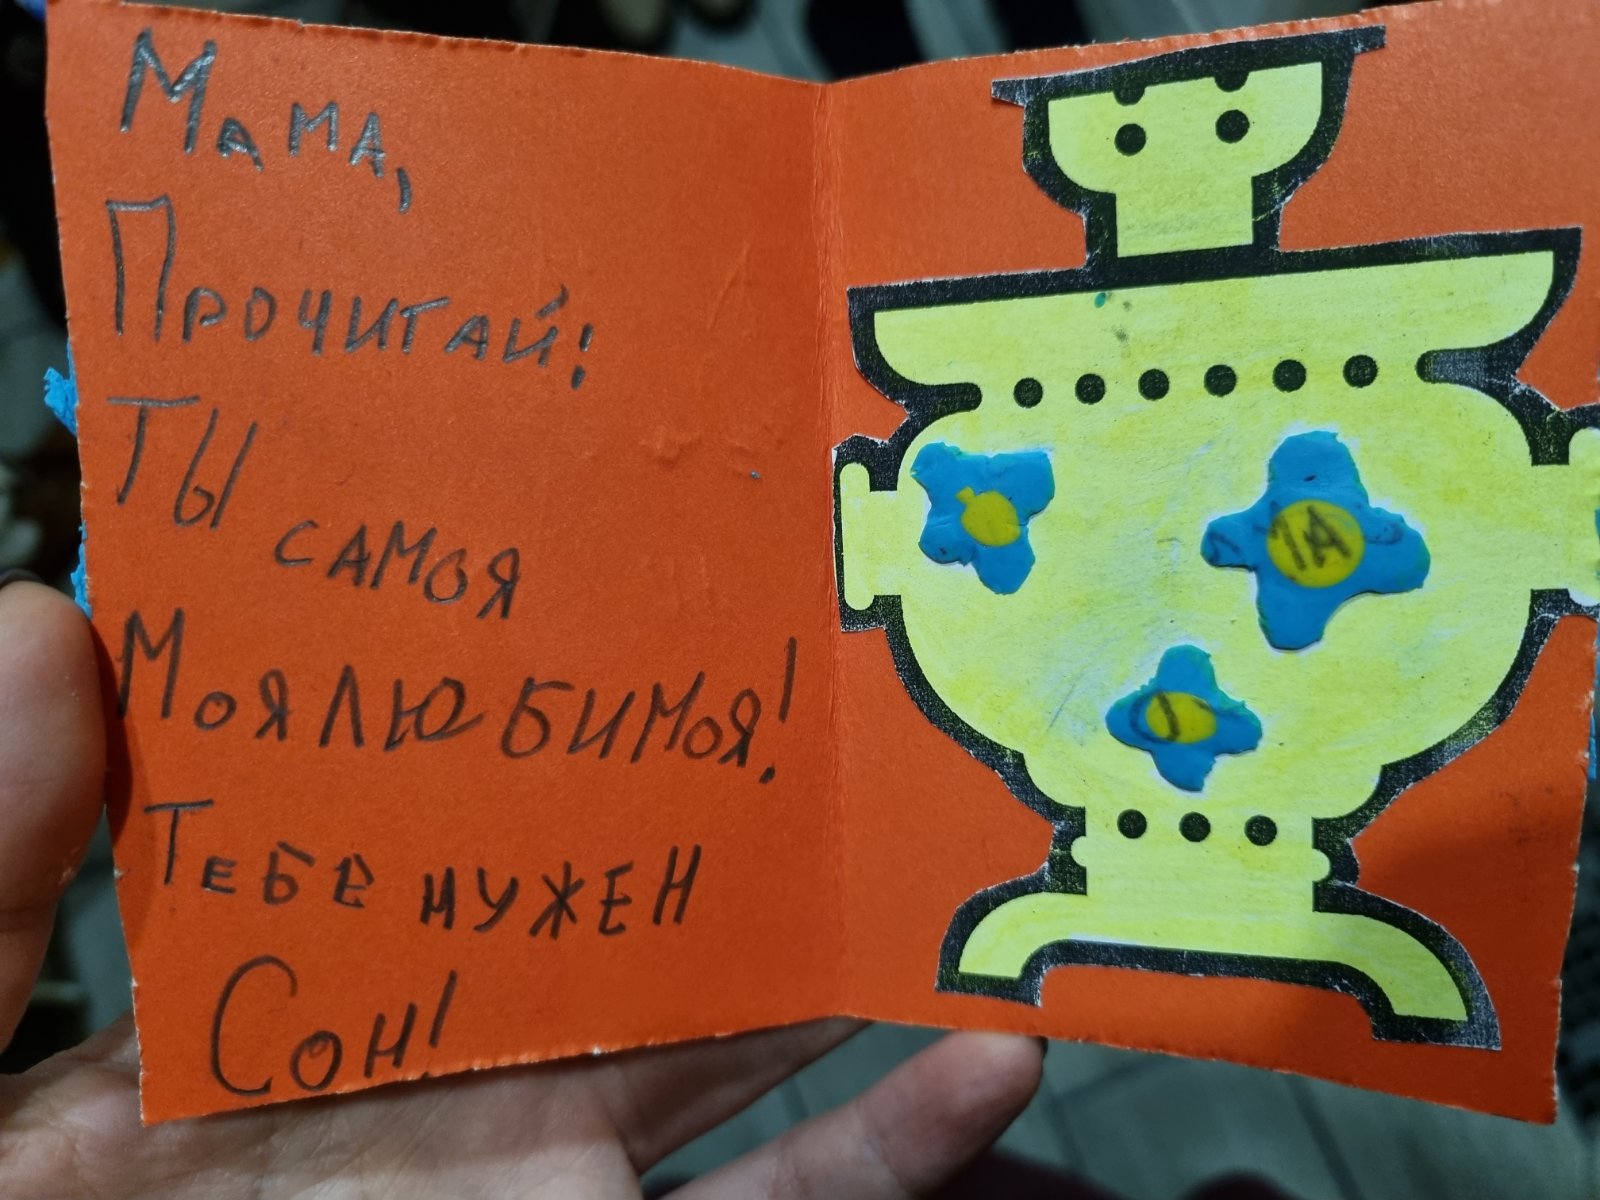 Мама,
Прочитай!
Ты самоя
Моя любимоя!
Тебе нужен
Сон!
1А